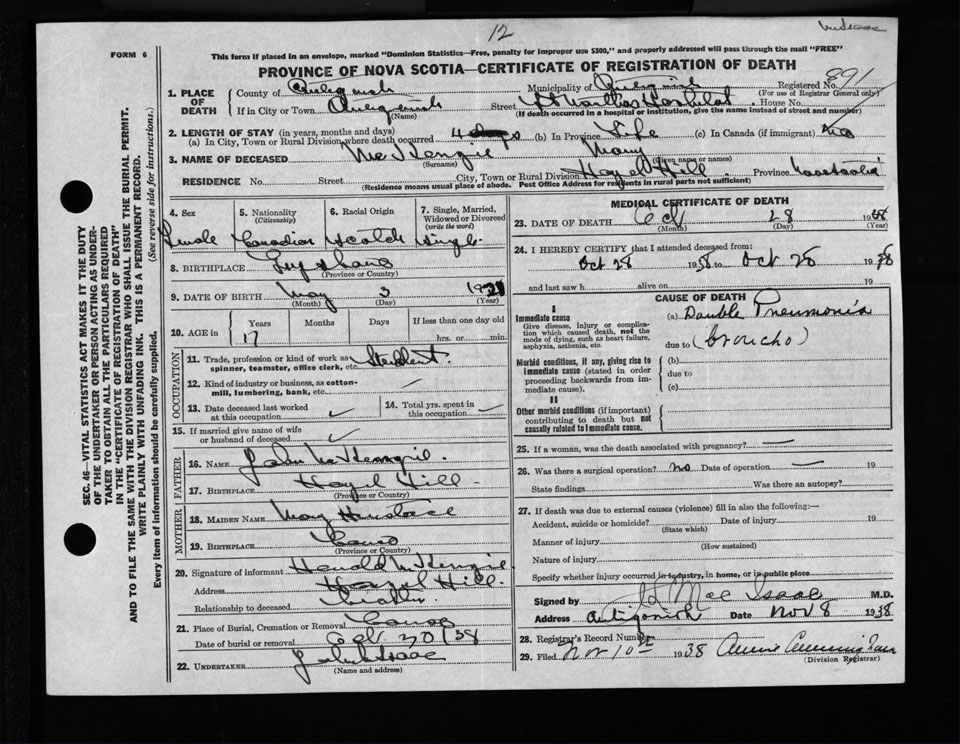 12
McIsaac
FORM 6
This form if placed in an envelope, marked "Dominion Statistics—Free, penalty for improper use $300," and properly addressed will pass through the mail "FREE"
PROVINCE OF NOVA SCOTIA—CERTIFICATE OF REGISTRATION OF DEATH
1. PLACE OF DEATH County of Antigonish Municipality of Antigonish Registered No. 891
(For use of Registrar General only)
If in City or Town Antigonish Street St Marthas Hospital House No.
(Name) (If death occurred in a hospital or institution, give the name instead of street and number)
2. LENGTH OF STAY (in years, months and days)
(a) In City, Town or Rural Division where death occurred 4 (b) In Province Life (c) In Canada (if immigrant) no
3. NAME OF DECEASED McKenzie Mary
(Surname) (Given name or names)
RESIDENCE No. Street City, Town or Rural Division Hazel Hill Province Nova Scotia
(Residence means usual place of abode. Post Office Address for residents in rural parts not sufficient)
SEC. 46—VITAL STATISTICS ACT MAKES IT THE DUTY
OF THE UNDERTAKER OR PERSON ACTING AS UNDER-
TAKER TO OBTAIN ALL THE PARTICULARS REQUIRED
IN THE "CERTIFICATE OF REGISTRATION OF DEATH"
AND TO FILE THE SAME WITH THE DIVISION REGISTRAR WHO SHALL ISSUE THE BURIAL PERMIT.
WRITE PLAINLY WITH UNFADING INK. THIS IS A PERMANENT RECORD.
Every item of information should be carefully supplied. (See reverse side for instructions.)
4. Sex 5. Nationality (Citizenship) 6. Racial Origin 7. Single, Married, Widowed or Divorced (write the word)
Female Canadian Scotch Single
8. BIRTHPLACE
(Province or Country)
9. DATE OF BIRTH May 3 1921
(Month) (Day) (Year)
10. AGE in Years Months Days If less than one day old
17 hrs. or min.
OCCUPATION
11. Trade, profession or kind of work as spinner, teamster, office clerk, etc. Student.
12. Kind of industry or business, as cotton-mill, lumbering, bank, etc.
13. Date deceased last worked at this occupation 14. Total yrs. spent in this occupation
15. If married give name of wife or husband of deceased
FATHER
16. NAME John McKenzie.
17. BIRTHPLACE Hazel Hill
(Province or Country)
MOTHER
18. MAIDEN NAME Mary
19. BIRTHPLACE Canso
(Province or Country)
20. Signature of informant Harold McKenzie
Address Hazel Hill.
Relationship to deceased Brother
21. Place of Burial, Cremation or Removal Canso
Date of burial or removal Oct 30/38
22. UNDERTAKER
(Name and address)
MEDICAL CERTIFICATE OF DEATH
23. DATE OF DEATH Oct 28 1938
(Month) (Day) (Year)
24. I HEREBY CERTIFY that I attended deceased from:
Oct 28 1938 to Oct 28 1938
and last saw h alive on 19
CAUSE OF DEATH
I
Immediate cause
Give disease, injury or complication which caused death, not the mode of dying, such as heart failure, asphyxia, asthenia, etc.
(a) Double Pneumonia
due to (broncho)
Morbid conditions, if any, giving rise to immediate cause (stated in order proceeding backwards from immediate cause).
(b)
due to
(c)
II
Other morbid conditions (if important) contributing to death but not causally related to immediate cause.
25. If a woman, was the death associated with pregnancy? —
26. Was there a surgical operation? no Date of operation — 19
State findings Was there an autopsy?
27. If death was due to external causes (violence) fill in also the following:—
Accident, suicide or homicide? Date of injury 19
(State which)
Manner of injury
(How sustained)
Nature of injury
Specify whether injury occurred in industry, in home, or in public place
Signed by MacIsaac M.D.
Address Antigonish Date Nov 8 1938
28. Registrar's Record Number
29. Filed Nov 10th 1938 Annie
(Division Registrar)